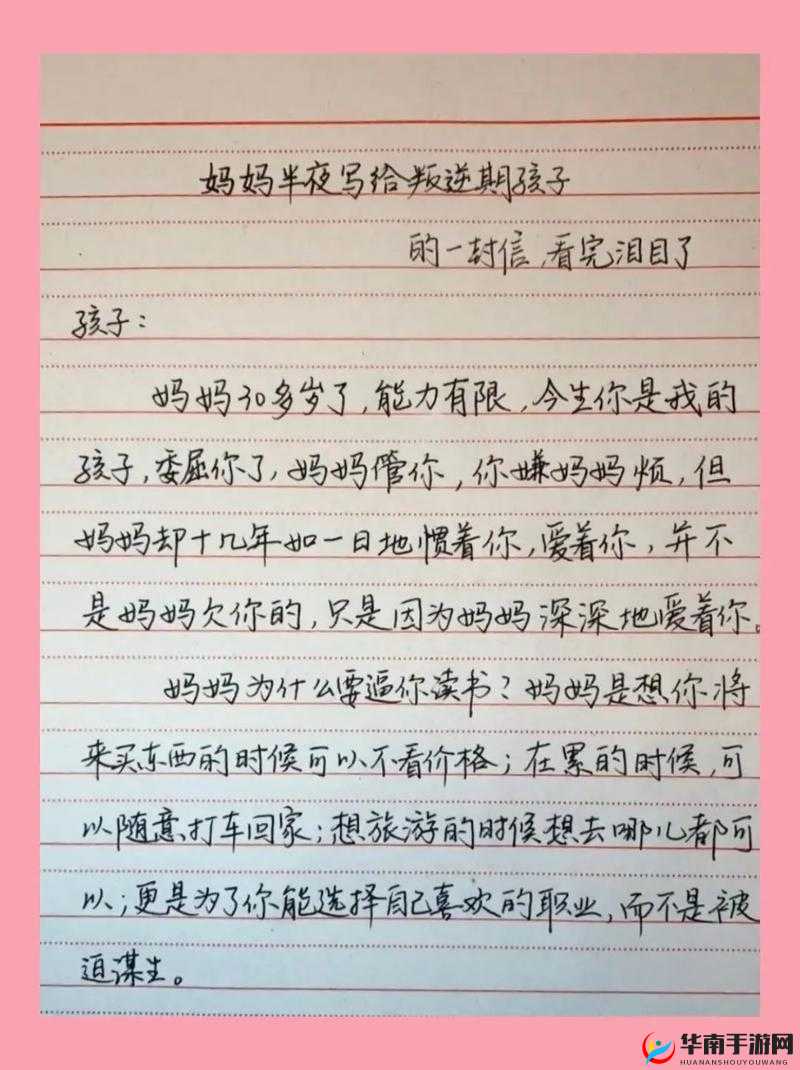 妈妈半夜写给叛逆期孩子
的一封信,看完泪目了
孩子:
妈妈30多岁了,能力有限,今生你是我的
孩子,委屈你了,妈妈管你,你嫌妈妈烦,但
妈妈却十几年如一日地惯着你,爱着你,并不
是妈妈欠你的,只是因为妈妈深深地爱着你。
妈妈为什么要逼你读书?妈妈是想你将
来买东西的时候可以不看价格;在累的时候,可
以随意打车回家;想旅游的时候想去哪儿都可
以;更是为了你能选择自己喜欢的职业,而不是被
迫谋生。
华南手游网
HUANANSHOUYOUWANG